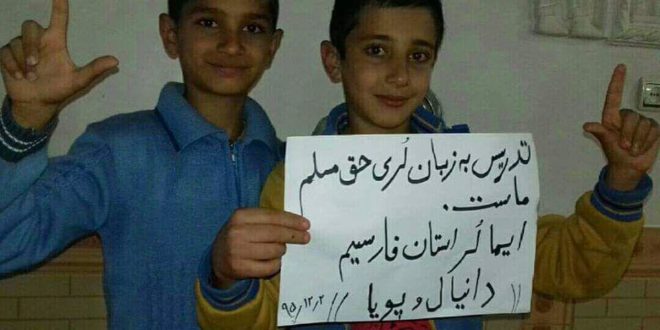 تدریس به زبان لُری حق مسلم
ماست.
ایما لُر استان فارسیم
دانیال و پویا // ۹۵/۱۲/۲